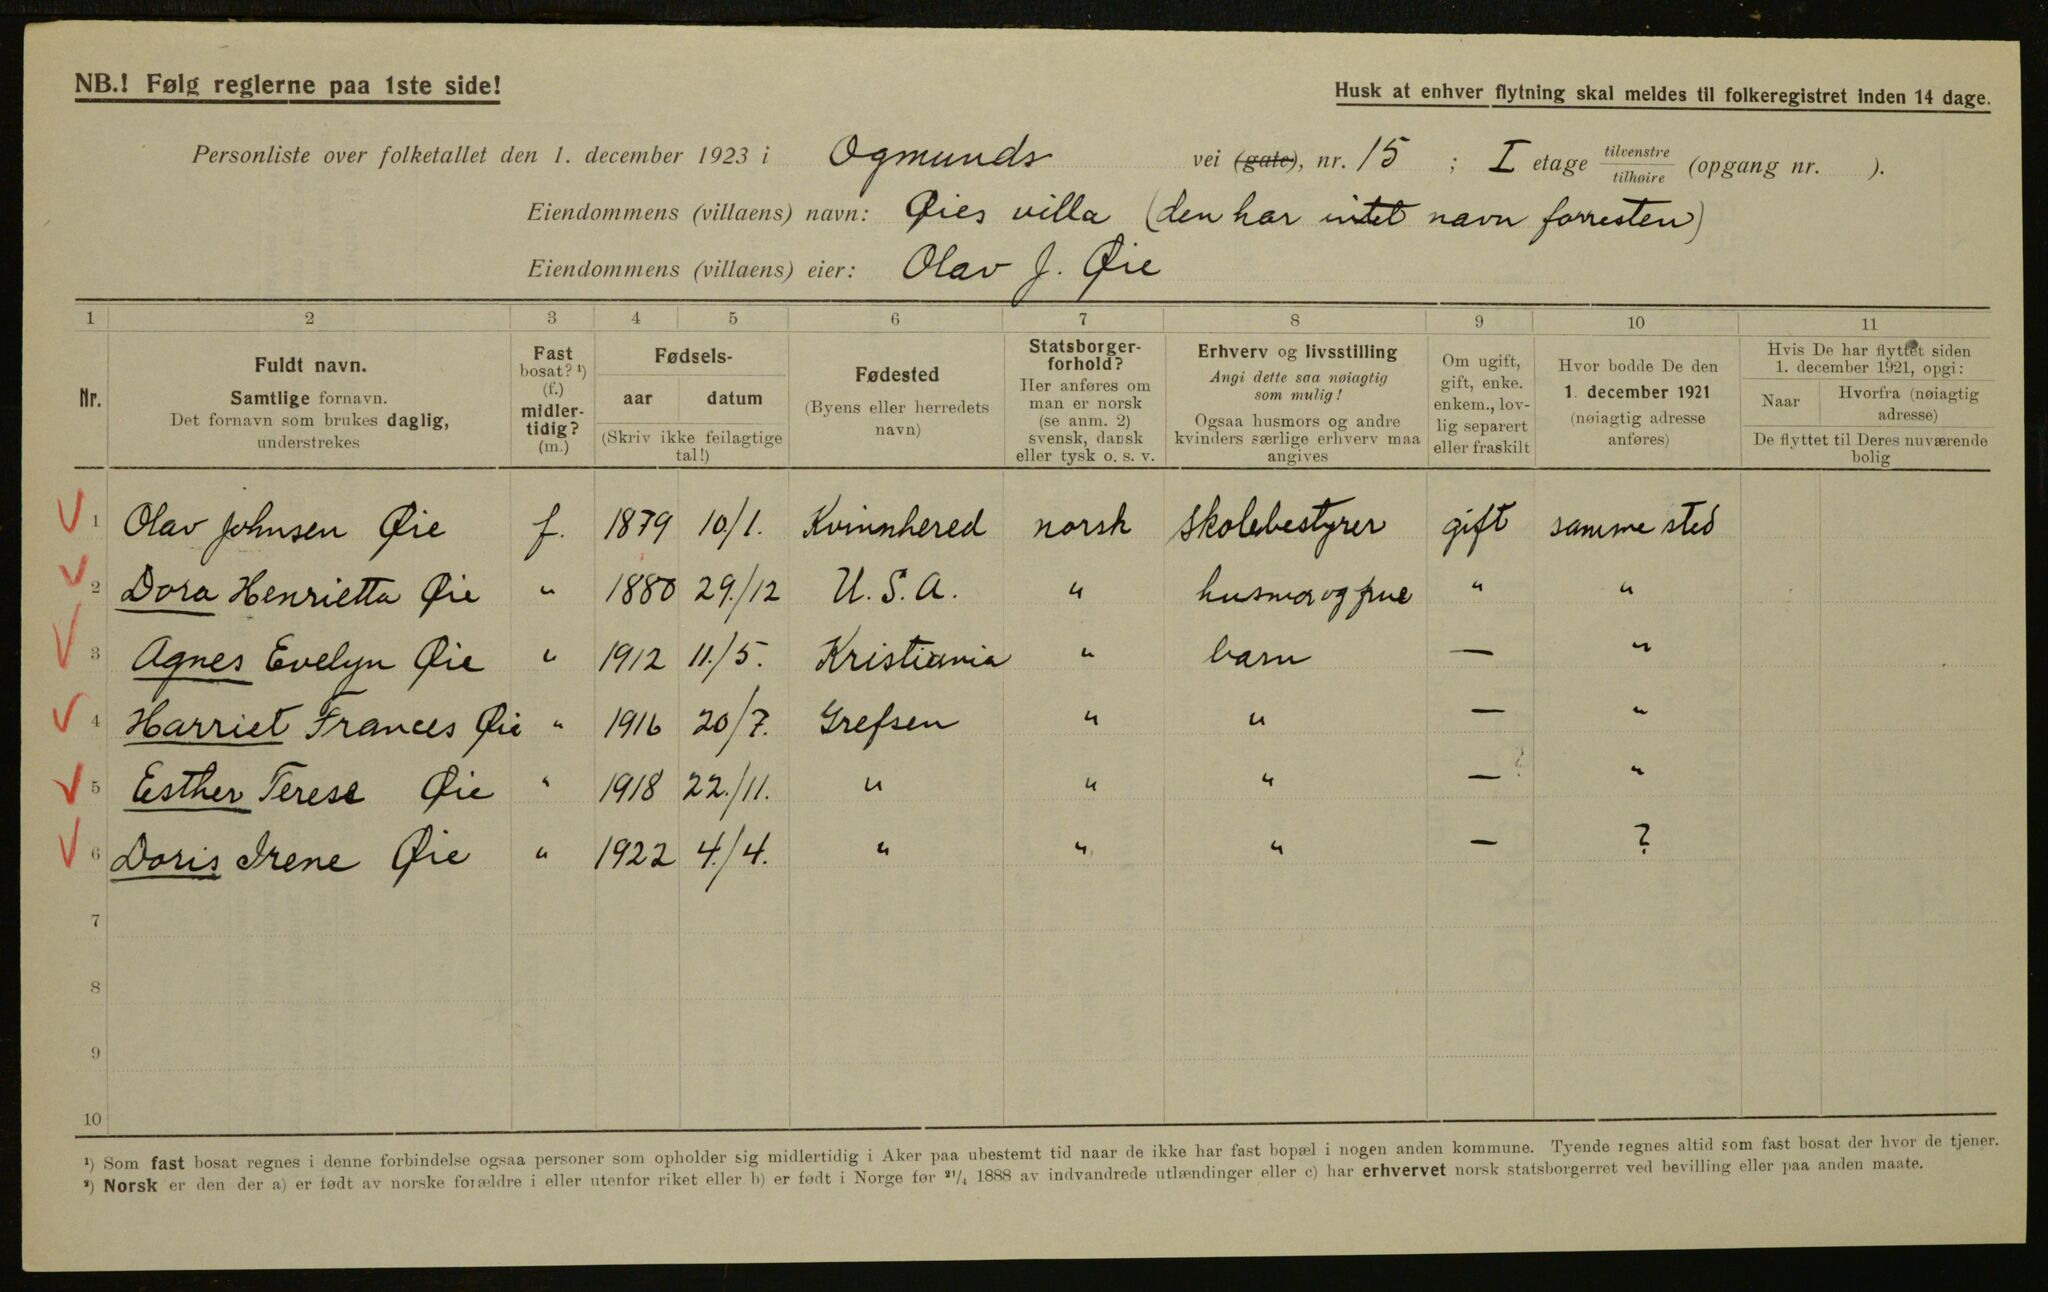 NB.! Følg reglerne paa 1ste side!
Husk at enhver flytning skal meldes til folkeregistret inden 14 dage.
Personliste over folketallet den 1. december 1923 i Ogmunds vei (gate), nr. 15 ; I etage tilvenstre tilhøire (opgang nr. ).
Eiendommens (villaens) navn: Øies villa (den har intet navn forresten)
Eiendommens (villaens) eier: Olav J. Øie
1 2 3 4 5 6 7 8 9 10 11
Nr.
Fuldt navn.
Samtlige fornavn.
Det fornavn som brukes daglig,
understrekes
Fast
bosat? ¹)
(f.)
midler-
tidig?
(m.)
Fødsels-
aar datum
(Skriv ikke feilagtige
tal!)
Fødested
(Byens eller herredets
navn)
Statsborger-
forhold?
Her anføres om
man er norsk
(se anm. 2)
svensk, dansk
eller tysk o. s. v.
Erhverv og livsstilling
Angi dette saa nøiagtig
som mulig!
Ogsaa husmors og andre
kvinders særlige erhverv maa
angives
Om ugift,
gift, enke.
enkem., lov-
lig separert
eller fraskilt
Hvor bodde De den
1. december 1921
(nøiagtig adresse
anføres)
Hvis De har flyttet siden
1. december 1921, opgi:
Naar
Hvorfra (nøiagtig
adresse)
De flyttet til Deres nuværende
bolig
1 Olav Johnsen Øie f. 1879 10/1. Kvinnhered norsk skolebestyrer gift samme sted
2 Dora Henrietta Øie " 1880 29./12 U. S. A. " husmor og frue " "
3 Agnes Evelyn Øie " 1912 11./5. Kristiania " barn — "
4 Harriet Frances Øie " 1916 20/7. Grefsen " " — "
5 Esther Terese Øie " 1918 22./11. " " " — "
6 Doris Irene Øie " 1922 4./4. " " " — ?
7
8
9
10
¹) Som fast bosat regnes i denne forbindelse ogsaa personer som opholder sig midlertidig i Aker paa ubestemt tid naar de ikke har fast bopæl i nogen anden kommune. Tyende regnes altid som fast bosat der hvor de tjener.
²) Norsk er den der a) er født av norske forældre i eller utenfor riket eller b) er født i Norge før ²¹/₄ 1888 av indvandrede utlændinger eller c) har erhvervet norsk statsborgerret ved bevilling eller paa anden maate.